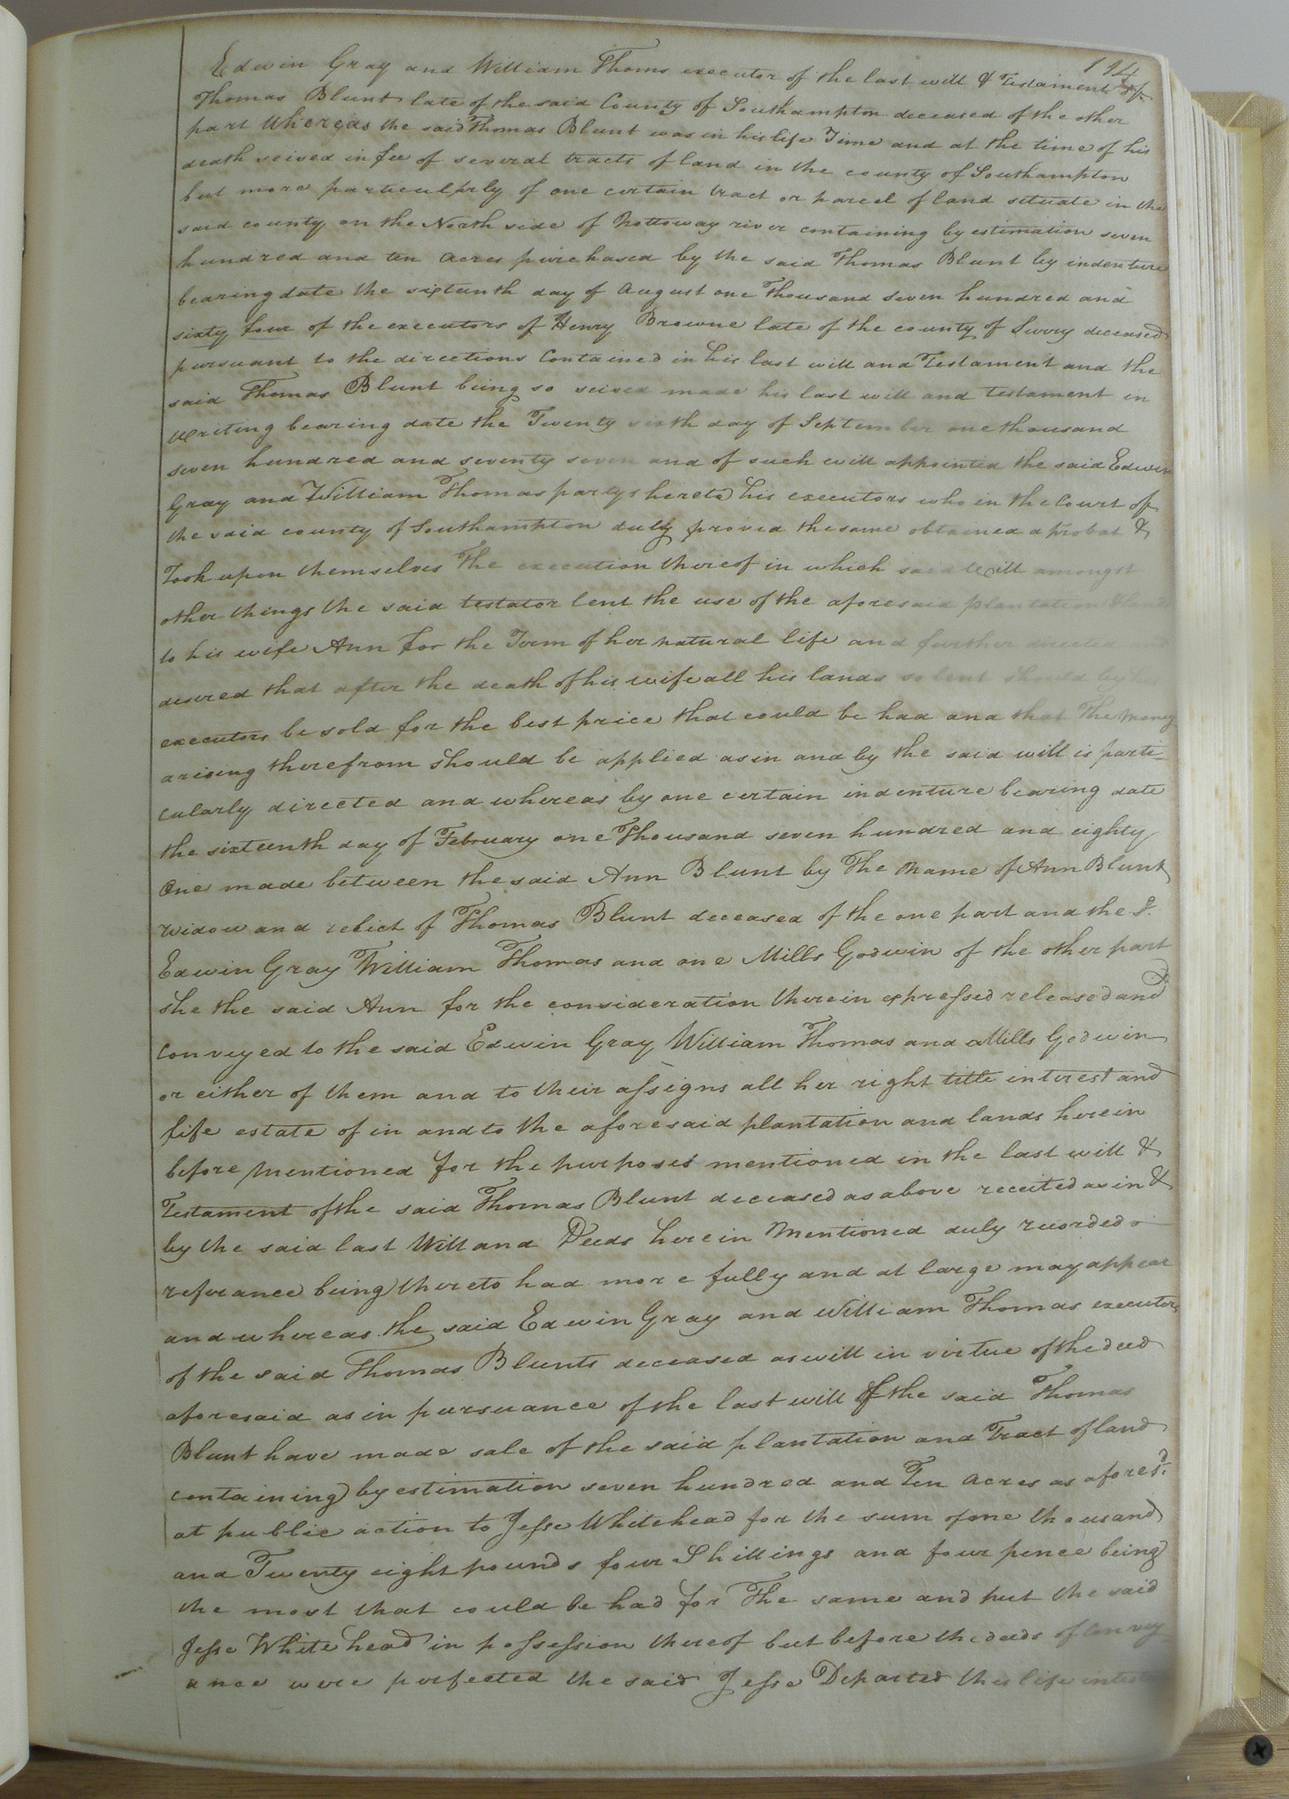 194
Edwin Gray and William Thoms executor of the last will & Testament of
Thomas Blunt late of the said County of Southampton deceased of the other
part Whereas the said Thomas Blunt was in his life Time and at the time of his
death seised in fee of several tracts of land in the county of Southampton
but more particularly of one certain tract or parcel of land situate in the
said county on the North side of Nottoway river containing by estimation seven
hundred and ten acres purchased by the said Thomas Blunt by indenture
bearing date the sixteenth day of August one Thousand seven hundred and
sixty four of the executors of Henry Browne late of the county of Surry deceased
pursuant to the directions Contained in his last will and Testament and the
said Thomas Blunt being so seised made his last will and testament in
Writing bearing date the Twenty sixth day of September one thousand
seven hundred and seventy seven and of such will appointed the said Edwin
Gray and William Thomas partys hereto his executors who in the Court of
the said county of Southampton duly proved the same obtained a probat &
Took upon themselves The execution thereof in which said Will amongst
other things the said testator lent the use of the aforesaid plantation & land
to his wife Ann for the Term of her natural life and further directed and
desired that after the death of his wife all his lands so lent should by his
executors be sold for the best price that could be had and that The money
arising therefrom should be applied as in and by the said will is parti=
cularly directed and whereas by one certain indenture bearing date
the sixteenth day of February one Thousand seven hundred and eighty
One made between the said Ann Blunt by The Name of Ann Blunt
widow and relict of Thomas Blunt deceased of the one part and the sd.
Edwin Gray William Thomas and one Mills Godwin of the other part
she the said Ann for the consideration therein expressed released and
conveyed to the said Edwin Gray William Thomas and Mills Godwin
or either of them and to their assigns all her right title interest and
life estate of in and to the aforesaid plantation and lands herein
before mentioned for the purposes mentioned in the last will &
Testament of the said Thomas Blunt deceased as above receited as in &
by the said last Will and Deeds herein Mentioned duly recorded
referance being thereto had more fully and at large may appear
and whereas the said Edwin Gray and William Thomas executors
of the said Thomas Blunts deceased as will in virtue of the deed
aforesaid as in pursuance of the last will of the said Thomas
Blunt have made sale of the said plantation and Tract of land
containing by estimation seven hundred and Ten acres as aforesd.
at public action to Jesse Whitehead for the sum of one thousand
and Twenty eight pounds four Shillings and four pence being
the most that could be had for The same and put the said
Jesse Whitehead in possession thereof but before the deeds of Convey
ance were perfected the said Jesse Departed this life